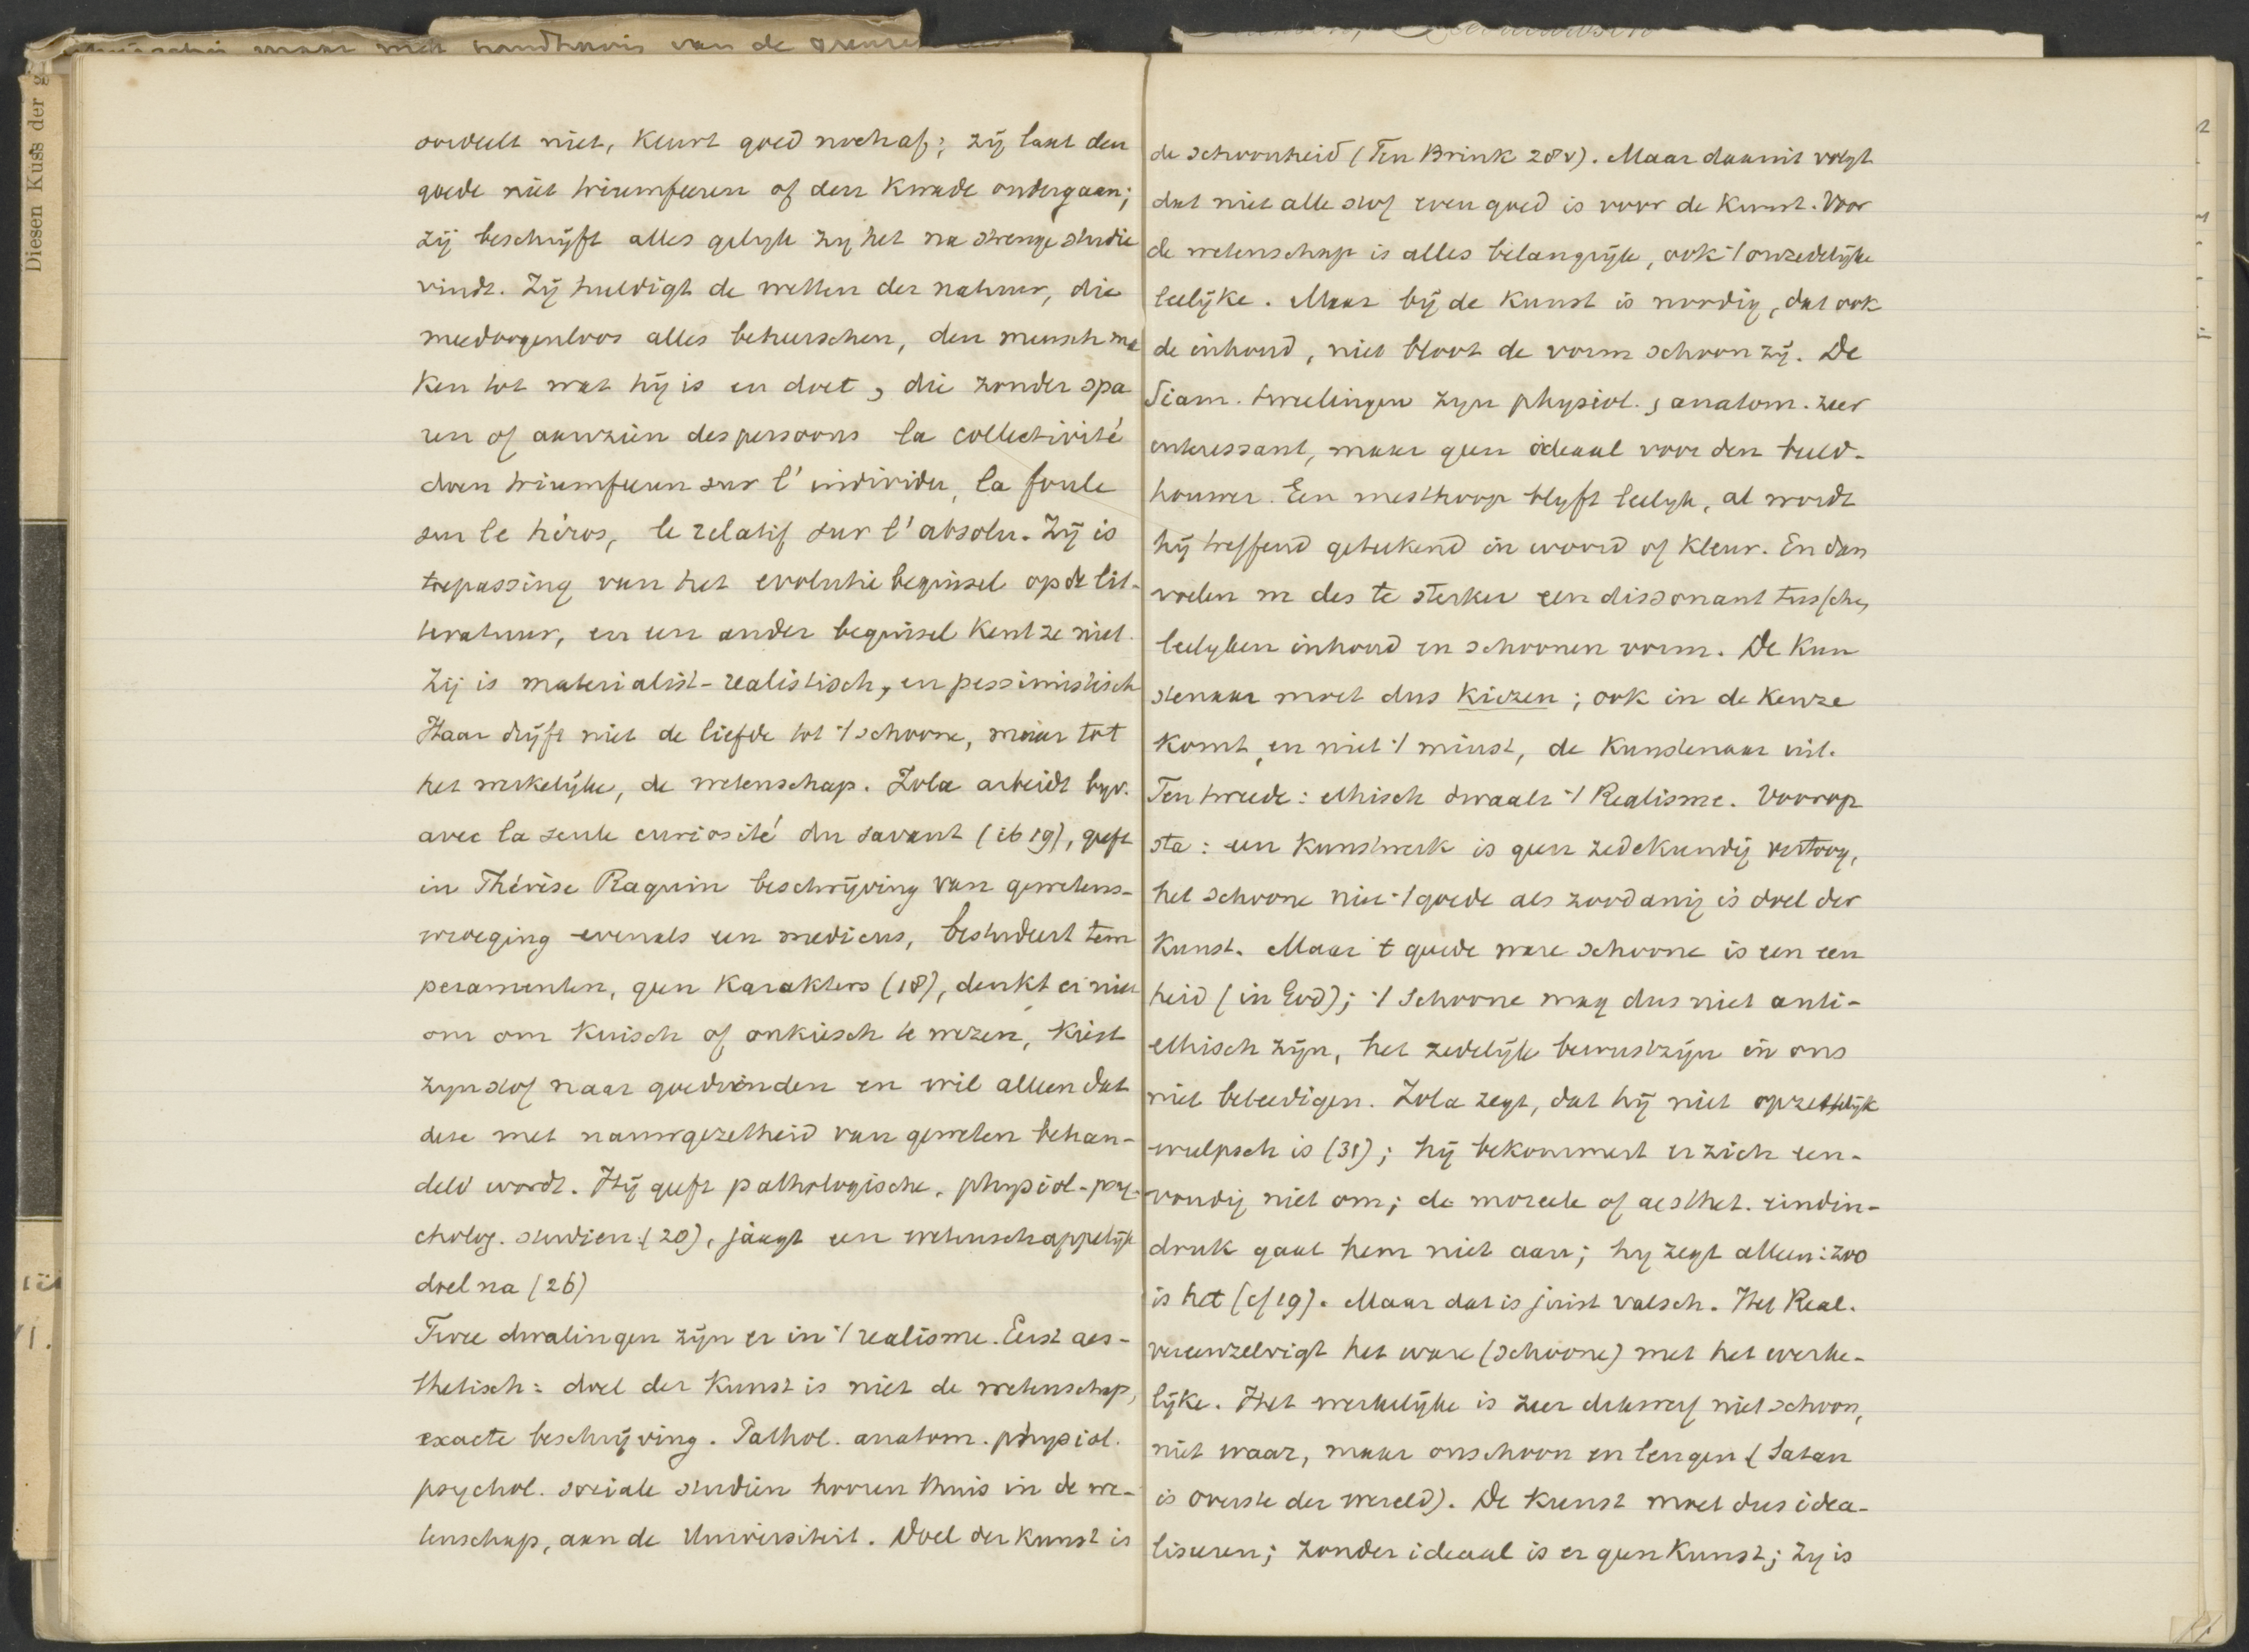 oordeelt niet, keurt goed noch af; zij laat den
goede niet triumfeeren of den kwade ondergaan;
zij beschrijft alles gelijk zij het na strenge studie
vindt. Zij huldigt de wetten der natuur, die
meedoogenloos alles beheerschen, den mensch ma
ken tot wat hij is en doet, die zonder spa
ren of aanzien des persoons la collectivité
doen triumfeeren sur l'individu, la foule
sur le héros, le relatif sur l'absolu. Zij is
toepassing van het evolutie beginsel op de lit-
teratuur, en een ander beginsel kent ze niet.
Zij is materialist-realistisch, en pessimistisch
Haar drijft niet de liefde tot 't schoone, maar tot
het werkelijke, de wetenschap. Zola arbeidt byv.
avec la seule curiosité du savant (ib 19), geeft
in Thérèse Raquin beschrijving van gewetens-
wroeging evenals een medicus, bestudeert tem
peramenten, geen karakters (18), denkt er niet
om om kuisch of onkiesch te wezen, kiest
zijn stof naar goedvinden en wil alleen dat
deze met nauwgezetheid van geweten behan-
deld wordt. Hij geeft pathologische, physiol-psy-
cholog. studien (20), jaagt een wetenschappelijk
doel na (26)
Twee dwalingen zijn er in 't realisme. Eerst aes-
thetisch: doel der kunst is niet de wetenschap,
exacte beschrijving. Pathol. anatom. physiol.
psychol. sociale studiën hooren thuis in de we-
tenschap, aan de Universiteit. Doel der kunst is
de schoonheid (Ten Brink 28v). Maar daaruit volgt
dat niet alle stof even goed is voor de kunst. Voor
de wetenschap is alles belangrijk, ook 't onzedelijke
leelijke. Maar bij de kunst is noodig, dat ook
de inhoud, niet bloot de vorm schoon zij. De
Siam. tweelingen zijn physiol., anatom. zeer
interessant, maar geen ideaal voor den beeld-
houwer. Een mesthoop blijft leelijk, al wordt
hij treffend geteekend in woord of kleur. En dan
voelen w des te sterker een dissonant tusschen
leelyken inhoud en schoonen vorm. De kun
stenaar moet dus kiezen; ook in de keuze
komt, en niet 't minst, de kunstenaar uit.
Ten tweede: ethisch dwaalt 't Realisme. Voorop
sta: een kunstwerk is geen zedekundig vertoog,
het schoone niet 't goede als zoodanig is doel der
kunst. Maar 't goede ware schoone is een een
heid (in God); 't Schoone mag dus niet anti-
ethisch zijn, het zedelijk bewustzijn in ons
niet beleedigen. Zola zegt, dat hij niet opzettelijk
wulpsch is (31); hij bekommert er zich een-
voudig niet om; de moreele of aesthet. eindin-
druk gaat hem niet aan; hy zegt alleen: zoo
is het (cf 19). Maar dat is juist valsch. Het Real.
vereenzelvigt het ware (schoone) met het werke-
lijke. Het werkelijke is zeer dikwerf niet schoon,
niet waar, maar onschoon en leugen (Satan
is overste der wereld). De kunst moet dus idea-
liseeren; zonder ideaal is er geen kunst; zy is
Diesen Kuss der